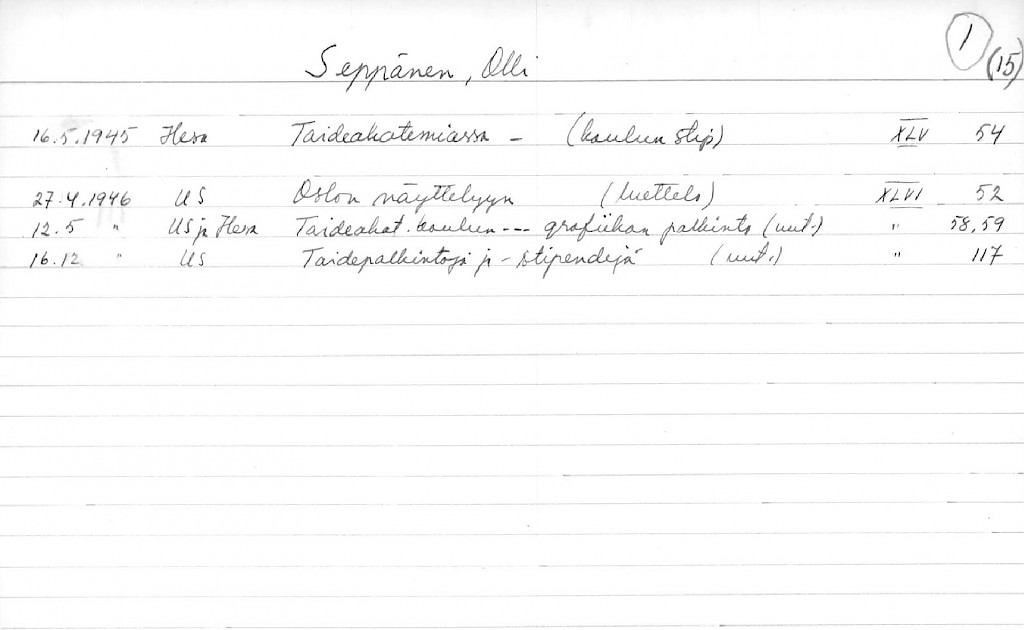 1 (15)
Seppänen, Olli
16.5.1945 Hesa Taideakatemiassa - (koulun stip) XLV 54
27.4.1946 US Oslon näyttelyyn (luettelo) XLVI 52
12.5 " US ja Hesa Taideakat. koulun --- grafiikan palkinto (uut.) " 58,59
16.12 " US Taidepalkintoja ja -stipendejä (uut.) " 117